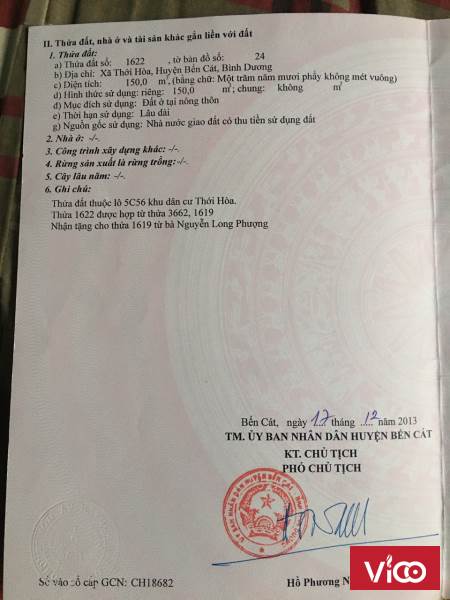 II. Thửa đất, nhà ở và tài sản khác gắn liền với đất
1. Thửa đất:
a) Thửa đất số: 1622 , tờ bản đồ số: 24
b) Địa chỉ: Xã Thới Hòa, Huyện Bến Cát, Bình Dương
c) Diện tích: 150,0 m², (bằng chữ: Một trăm năm mươi phẩy không mét vuông)
d) Hình thức sử dụng: riêng: 150,0 m²; chung: không m²
đ) Mục đích sử dụng: Đất ở tại nông thôn
e) Thời hạn sử dụng: Lâu dài
g) Nguồn gốc sử dụng: Nhà nước giao đất có thu tiền sử dụng đất
2. Nhà ở: -/-
3. Công trình xây dựng khác: -/-
4. Rừng sản xuất là rừng trồng: -/-
5. Cây lâu năm: -/-
6. Ghi chú:
Thửa đất thuộc lô 5C56 khu dân cư Thới Hòa.
Thửa 1622 được hợp từ thửa 3662, 1619
Nhận tặng cho thửa 1619 từ bà Nguyễn Long Phượng
Bến Cát, ngày 17 tháng 12 năm 2013
TM. ỦY BAN NHÂN DÂN HUYỆN BẾN CÁT
KT. CHỦ TỊCH
PHÓ CHỦ TỊCH
Số vào sổ cấp GCN: CH18682
Hồ Phương
Vioo